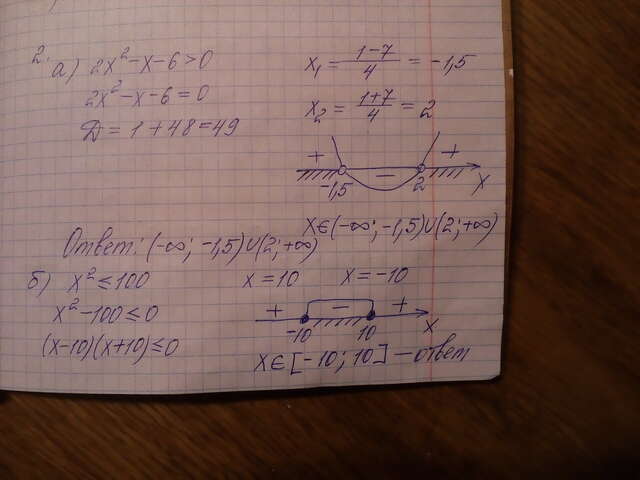 2. а) 2x² - x - 6 > 0
2x² - x - 6 = 0
Д = 1 + 48 = 49
x₁ = (1-7)/4 = -1,5
x₂ = (1+7)/4 = 2
+ - +
-1,5 2 x
x ∈ (-∞; -1,5) ∪ (2; +∞)
Ответ: (-∞; -1,5) ∪ (2; +∞)
б) x² ≤ 100
x² - 100 ≤ 0
(x-10)(x+10) ≤ 0
x = 10 x = -10
+ - +
-10 10 x
x ∈ [-10; 10] - ответ